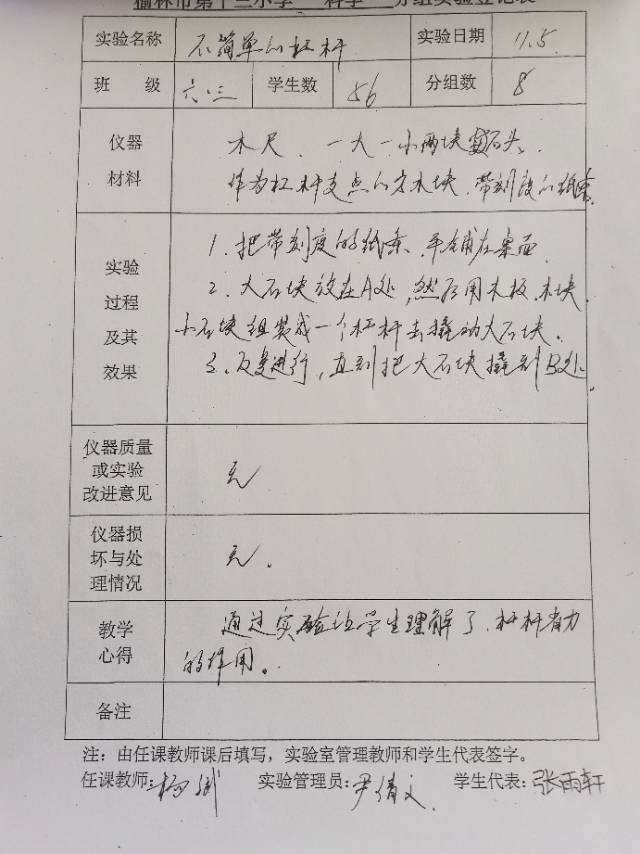 榆林市第十三小学 科学 分组实验登记表
实验名称 不简单的杠杆 实验日期 11.5.
班 级 六.三 学生数 56 分组数 8
仪器 木尺、一大一小两块石头、
材料 作为杠杆支点的方木块、带刻度的纸条.
实验 1、把带刻度的纸条、平铺在桌面
过程 2、大石块放在A处,然后用木板、木块
及其 小石块组装成一个杠杆去撬动大石块.
效果 3、反复进行,直到把大石块撬到B处.
仪器质量
或实验 无
改进意见
仪器损
坏与处 无.
理情况
教学 通过实验让学生理解了、杠杆省力
心得 的作用。
备注
注：由任课教师课后填写，实验室管理教师和学生代表签字。
任课教师: 杨 实验管理员: 尹倩文 学生代表: 张雨轩